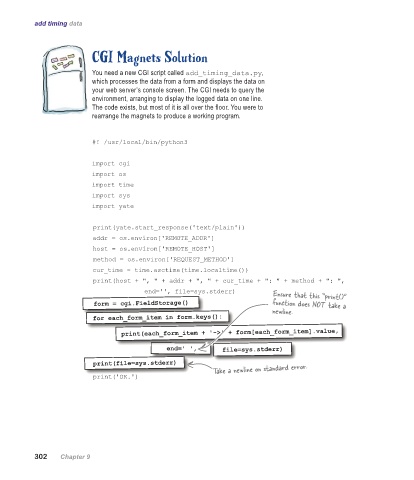 add timing data
CGI Magnets Solution
You need a new CGI script called add_timing_data.py,
which processes the data from a form and displays the data on
your web server's console screen. The CGI needs to query the
environment, arranging to display the logged data on one line.
The code exists, but most of it is all over the floor. You were to
rearrange the magnets to produce a working program.
#! /usr/local/bin/python3
import cgi
import os
import time
import sys
import yate
print(yate.start_response('text/plain'))
addr = os.environ['REMOTE_ADDR']
host = os.environ['REMOTE_HOST']
method = os.environ['REQUEST_METHOD']
cur_time = time.asctime(time.localtime())
print(host + ", " + addr + ", " + cur_time + ": " + method + ": ",
end='', file=sys.stderr)
form = cgi.FieldStorage()
for each_form_item in form.keys():
print(each_form_item + '->' + form[each_form_item].value,
end=' ',
file=sys.stderr)
print(file=sys.stderr)
print('OK.')
Ensure that this "print()"
function does NOT take a
newline.
Take a newline on standard error.
302 Chapter 9